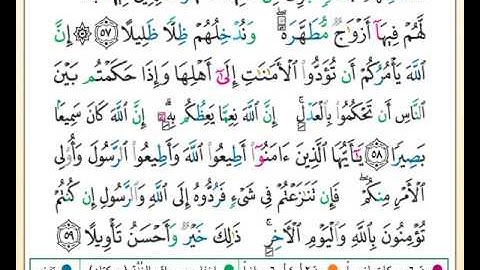 لَّهُمْ فِيهَآ أَزْوَٰجٌ مُّطَهَّرَةٌ ۖ وَنُدْخِلُهُمْ ظِلًّا ظَلِيلًا ﴿٥٧﴾ ۞ إِنَّ
ٱللَّهَ يَأْمُرُكُمْ أَن تُؤَدُّوا۟ ٱلْأَمَـٰنَـٰتِ إِلَىٰٓ أَهْلِهَا وَإِذَا حَكَمْتُم بَيْنَ
ٱلنَّاسِ أَن تَحْكُمُوا۟ بِٱلْعَدْلِ ۚ إِنَّ ٱللَّهَ نِعِمَّا يَعِظُكُم بِهِۦٓ ۗ إِنَّ ٱللَّهَ كَانَ سَمِيعًۢا
بَصِيرًا ﴿٥٨﴾ يَـٰٓأَيُّهَا ٱلَّذِينَ ءَامَنُوٓا۟ أَطِيعُوا۟ ٱللَّهَ وَأَطِيعُوا۟ ٱلرَّسُولَ وَأُو۟لِى
ٱلْأَمْرِ مِنكُمْ ۖ فَإِن تَنَـٰزَعْتُمْ فِى شَىْءٍ فَرُدُّوهُ إِلَى ٱللَّهِ وَٱلرَّسُولِ إِن كُنتُمْ
تُؤْمِنُونَ بِٱللَّهِ وَٱلْيَوْمِ ٱلْـَٔاخِرِ ۚ ذَٰلِكَ خَيْرٌ وَأَحْسَنُ تَأْوِيلًا ﴿٥٩﴾